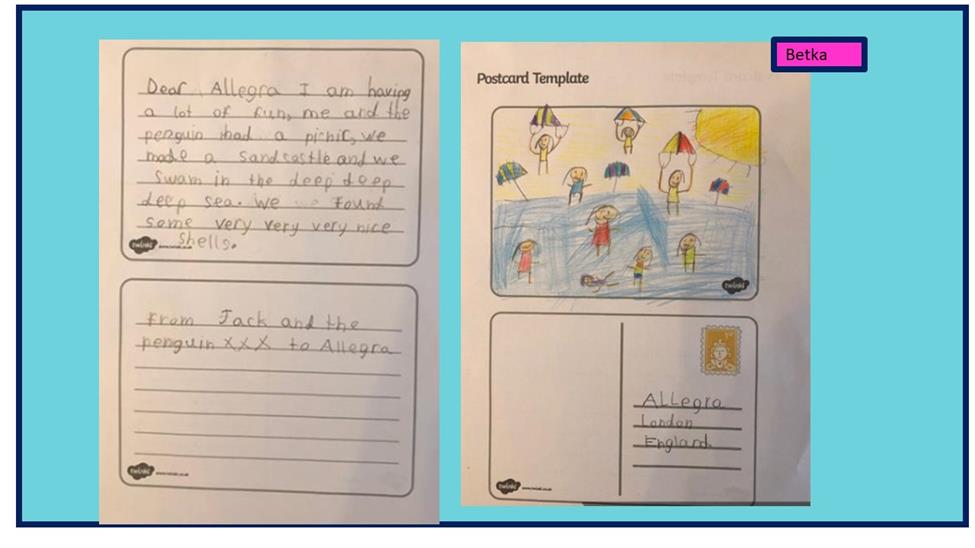 Betka
Dear Allegra I am having
a lot of fun, me and the
penguin had a picnic, we
made a sandcastle and we
swam in the deep deep
deep sea. We found
some very very very nice
shells.
twinkl www.twinkl.co.uk
From Jack and the
penguin XXX to Allegra
twinkl www.twinkl.co.uk
Postcard Template
twinkl
ALLegra
London
England
twinkl www.twinkl.co.uk